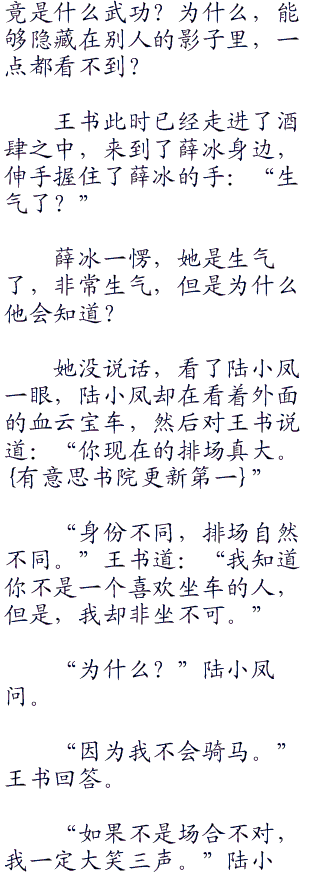 竟是什么武功？为什么，能
够隐藏在别人的影子里，一
点都看不到？
王书此时已经走进了酒
肆之中，来到了薛冰身边，
伸手握住了薛冰的手：“生
气了？”
薛冰一愣，她是生气
了，非常生气，但是为什么
他会知道？
她没说话，看了陆小凤
一眼，陆小凤却在看着外面
的血云宝车，然后对王书说
道：“你现在的排场真大。
{有意思书院更新第一}”
“身份不同，排场自然
不同。”王书道：“我知道
你不是一个喜欢坐车的人，
但是，我却非坐不可。”
“为什么？”陆小凤
问。
“因为我不会骑马。”
王书回答。
“如果不是场合不对，
我一定大笑三声。”陆小